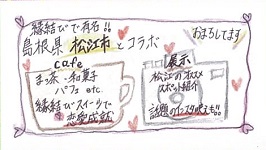 縁結びで有名!!
島根県 松江市とコラボ
おまちしてます
cafe
まっ茶・和菓子
パフェ etc
縁結びスイーツで
恋愛成就
展示
松江のオススメ
スポット紹介
話題のインスタ映えも!!